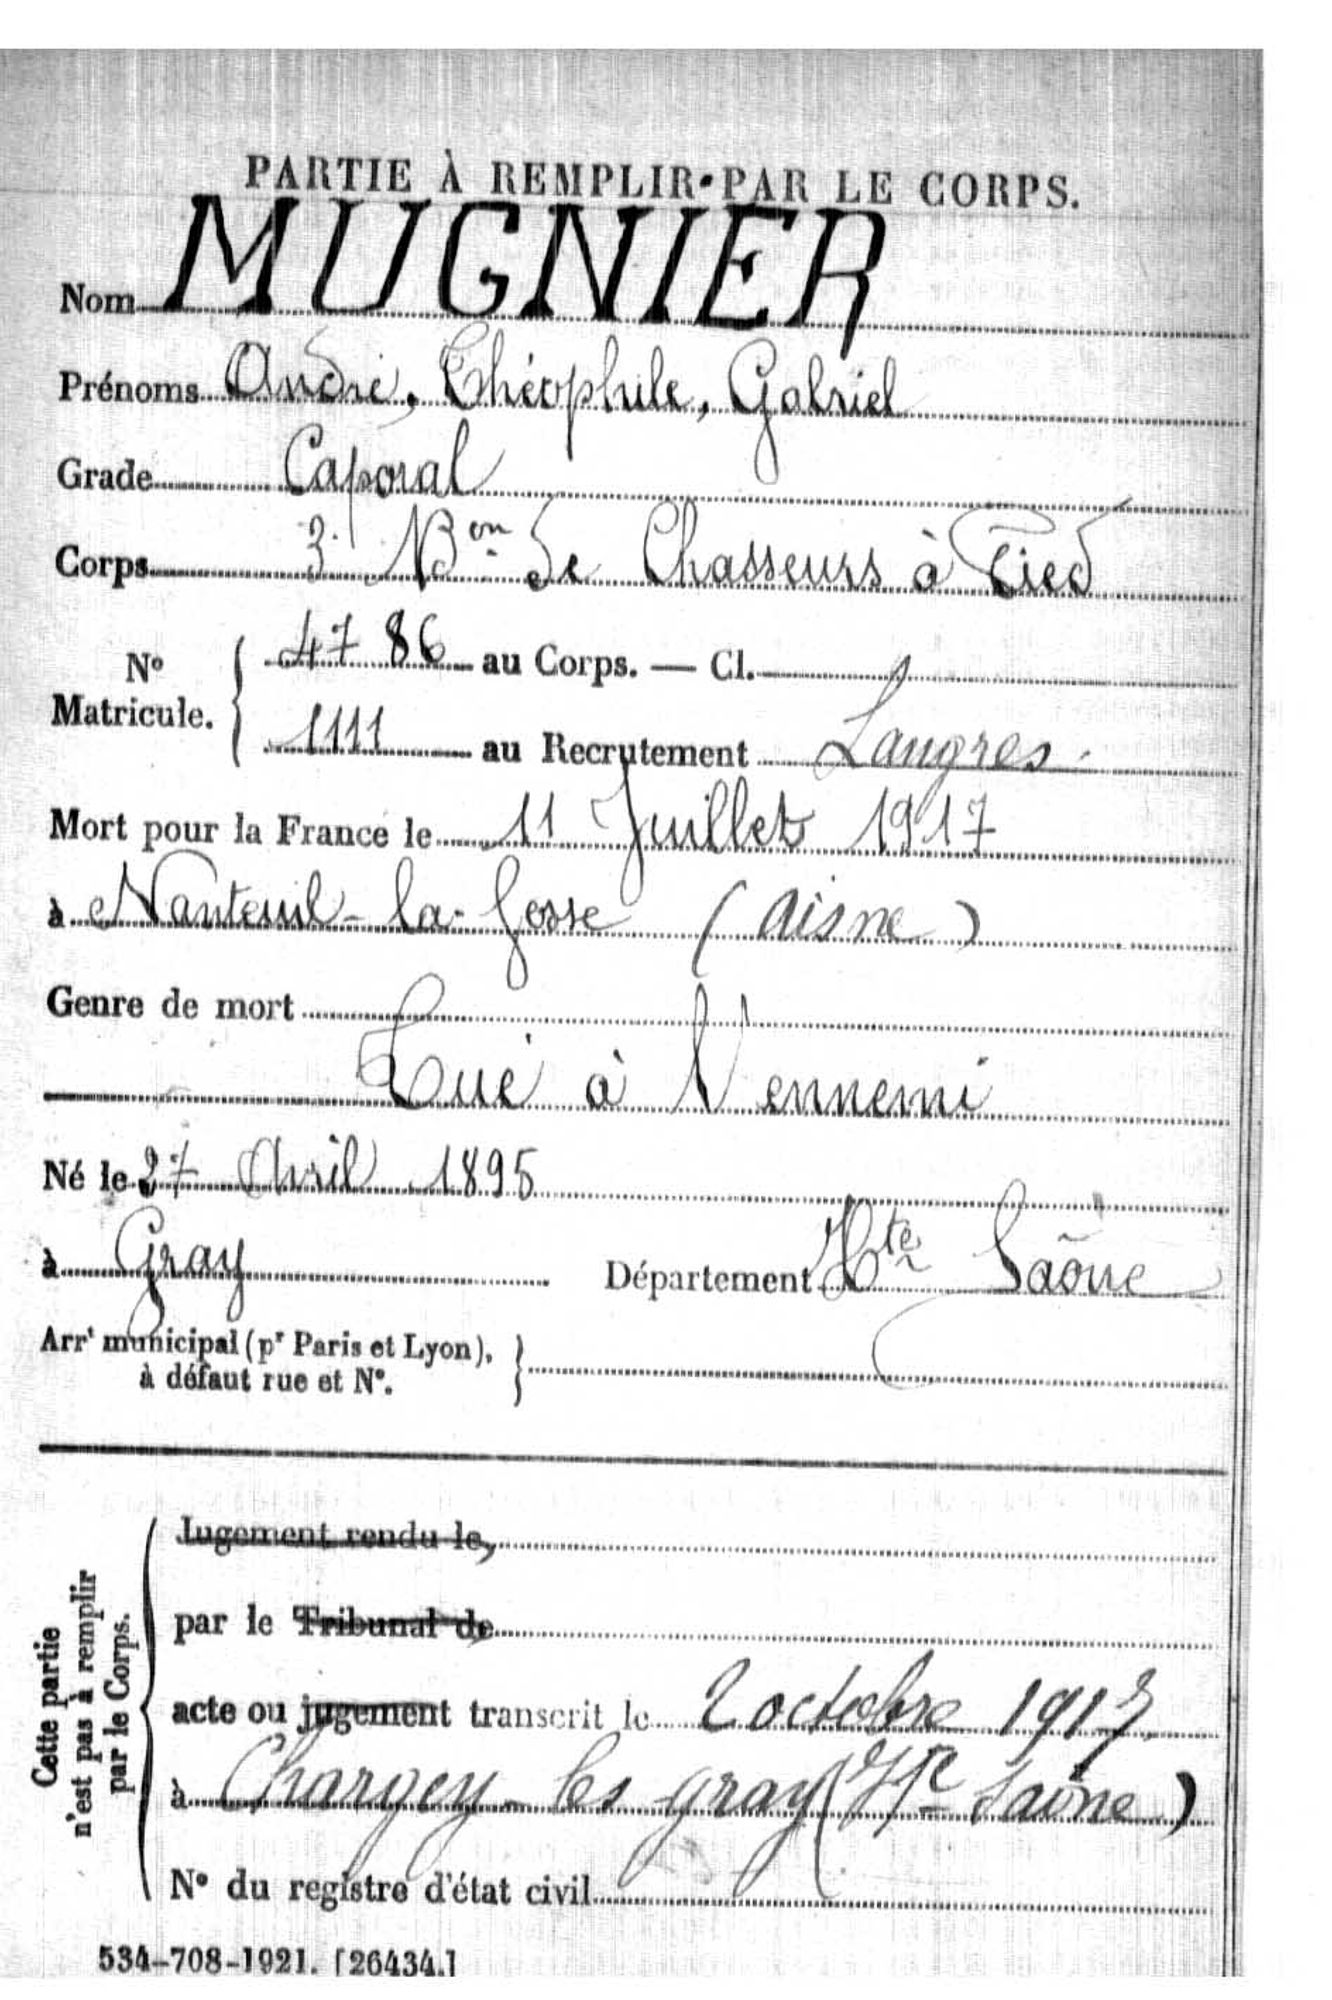 PARTIE À REMPLIR PAR LE CORPS.
Nom MUGNIER
Prénoms André, Théophile, Gabriel
Grade Caporal
Corps 3. Bon de Chasseurs à Pied
N° Matricule. { 4786 au Corps. — Cl.
1111 au Recrutement Langres.
Mort pour la France le 11 Juillet 1917
à Nanteuil-la-fosse (Aisne)
Genre de mort
Tué à l'ennemi
Né le 27 Avril 1895
à Gray Département Hte Saône
Arrt municipal (pr Paris et Lyon), }
à défaut rue et N°.
Cette partie
n'est pas à remplir
par le Corps.
Jugement rendu le,
par le Tribunal de
acte ou jugement transcrit le 2 octobre 1917
à Chargey-les gray (Hte Saône)
N° du registre d'état civil
534-708-1921. [26434.]